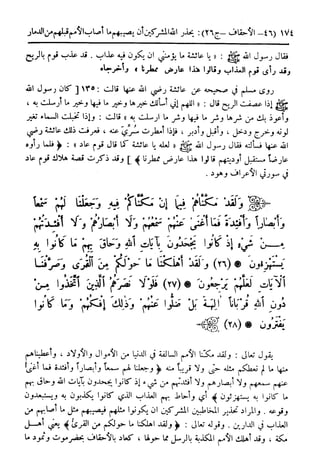 ١٧٤ (٤٦ – الأحقاف – ج٢٦): يحذر الله المشركين أن يصيبهم ما أصاب الأمم قبلهم من الدمار
فقال رسول الله ﷺ : « يا عائشة ما يؤمنني ان يكون فيه عذاب . قد عذب قوم بالريح
وقد رأى قوم العذاب وقالوا هذا عارض ممطرنا » وأخرجاه
روى مسلم في صحيحه عن عائشة رضي الله عنها قالت : ١٣٥ [ كان رسول الله
ﷺ إذا عصفت الريح قال : « اللهم إني أسألك خيرها وخير ما فيها وخير ما أرسلت به ،
وأعوذ بك من شرها وشر ما فيها وشر ما أرسلت به » قالت : وإذا تخبلت السماء تغير
لونه وخرج ودخل ، وأقبل وأدبر ، فإذا أمطرت سُرِّيَ عنه ، فعرفت ذلك عائشة رضي
الله عنها فسألته فقال رسول الله ﷺ « لعله يا عائشة كما قال قوم عاد ﴿ فلما رأوه
عارضاً مستقبل أوديتهم قالوا هذا عارض ممطرنا ﴾ ] وقد ذكرت قصة هلاك قوم عاد
في سورتي الأعراف وهود .
وَلَقَدْ مَكَّنَّاهُمْ فِيمَا إِنْ مَكَّنَّاكُمْ فِيهِ وَجَعَلْنَا لَهُمْ سَمْعاً
وَأَبْصَاراً وَأَفْئِدَةً فَمَا أَغْنَى عَنْهُمْ سَمْعُهُمْ وَلَا أَبْصَارُهُمْ وَلَا أَفْئِدَتُهُمْ
مِنْ شَيْءٍ إِذْ كَانُوا يَجْحَدُونَ بِآيَاتِ اللهِ وَحَاقَ بِهِمْ مَا كَانُوا بِهِ
يَسْتَهْزِءُونَ * (٢٦) وَلَقَدْ أَهْلَكْنَا مَا حَوْلَكُمْ مِنَ الْقُرَى وَصَرَّفْنَا
الْآيَاتِ لَعَلَّهُمْ يَرْجِعُونَ * (٢٧) فَلَوْلَا نَصَرَهُمُ الَّذِينَ اتَّخَذُوا مِنْ
دُونِ اللهِ قُرْبَاناً آلِهَةً بَلْ ضَلُّوا عَنْهُمْ وَذَلِكَ إِفْكُهُمْ وَمَا كَانُوا
يَفْتَرُونَ * (٢٨)
يقول تعالى : ولقد مكنا الأمم السالفة في الدنيا من الأموال والأولاد ، وأعطيناهم
منها ما لم نعطكم مثله حتى ولا قريباً منه ﴿ وجعلنا لهم سمعاً وأبصاراً وأفئدة فما أغنى
عنهم سمعهم ولا أبصارهم ولا أفئدتهم من شيء إذ كانوا يجحدون بآيات الله وحاق بهم
ما كانوا به يستهزئون ﴾ أي وأحاط بهم العذاب الذي كانوا يكذبون به ويستبعدون
وقوعه . والمراد تحذير المخاطبين المشركين ان يكونوا مثلهم فيصيبهم مثل ما أصابهم من
العذاب في الدارين . وقوله تعالى : ﴿ ولقد أهلكنا ما حولكم من القرى ﴾ يعني أهل
مكة ، وقد أهلك الأمم المكذبة بالرسل مما حولها ، كعاد بالأحقاف بحضرموت وثمود ما